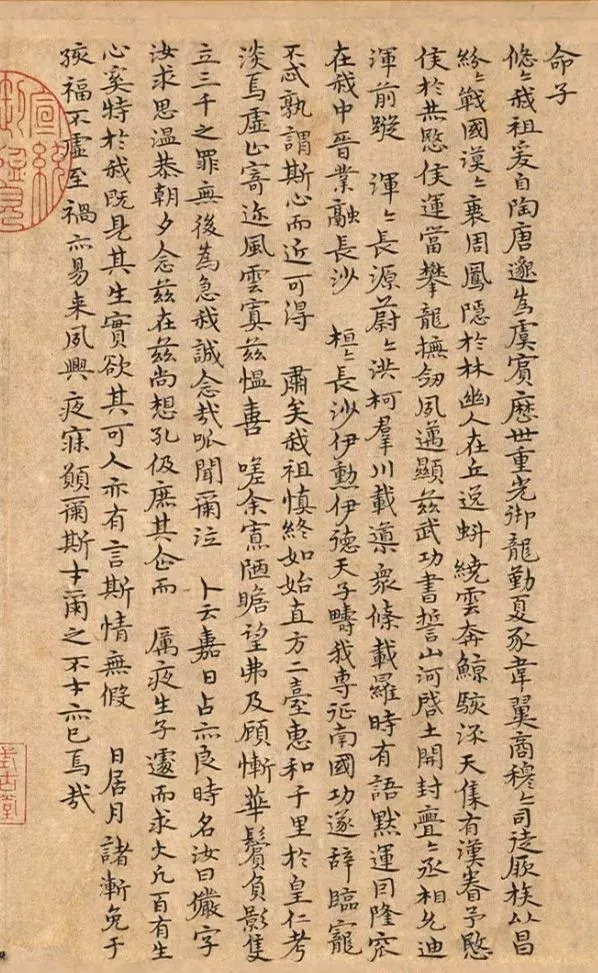 命子
悠〻我祖爰自陶唐邈為虞賓歷世重光御龍勤夏豕韋翼商穆〻司徒厥族以昌
紛〻戰國漠〻衰周鳳隱於林幽人在丘逸虯繞雲奔鯨駭流天集有漢眷予愍
侯於赫愍侯運當攀龍撫劒夙邁顯茲武功書誓山河啓土開封亹〻丞相允迪
渾前蹤 渾〻長源蔚〻洪柯羣川載導衆條載羅時有語默運因隆窊
在我中晉業融長沙 桓〻長沙伊勳伊德天子疇我專征南國功遂辭臨寵
不忒孰謂斯心而近可得 肅矣我祖慎終如始直方二臺惠和千里於皇仁考
淡焉虛止寄迹風雲寘茲慍喜 嗟余寡陋瞻望弗及顧慚華鬢負影隻
立三千之罪無後為急我誠念哉呱聞爾泣 卜云嘉日占亦良時名汝曰儼字
汝求思溫恭朝夕念茲在茲尚想孔伋庶其企而 厲夜生子遽而求火凡百有生
心奚特於我既見其生實欲其可人亦有言斯情無假 日居月諸漸免于
孩福不虛至禍亦易来夙興夜寐願爾斯才爾之不才亦已焉哉
宣統
御覽
式古堂